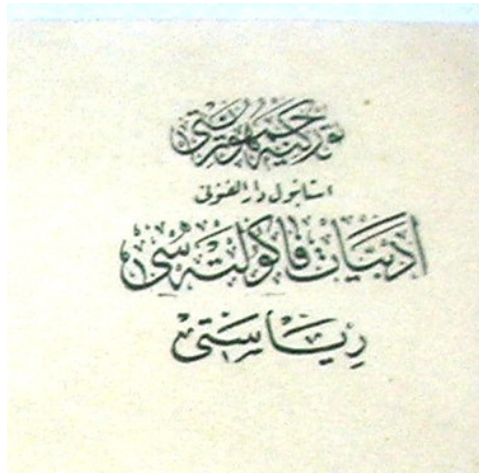 توركيه جمهوريتى
استانبول دار الفنونى
ادبيات فاكولته سى
رياستى